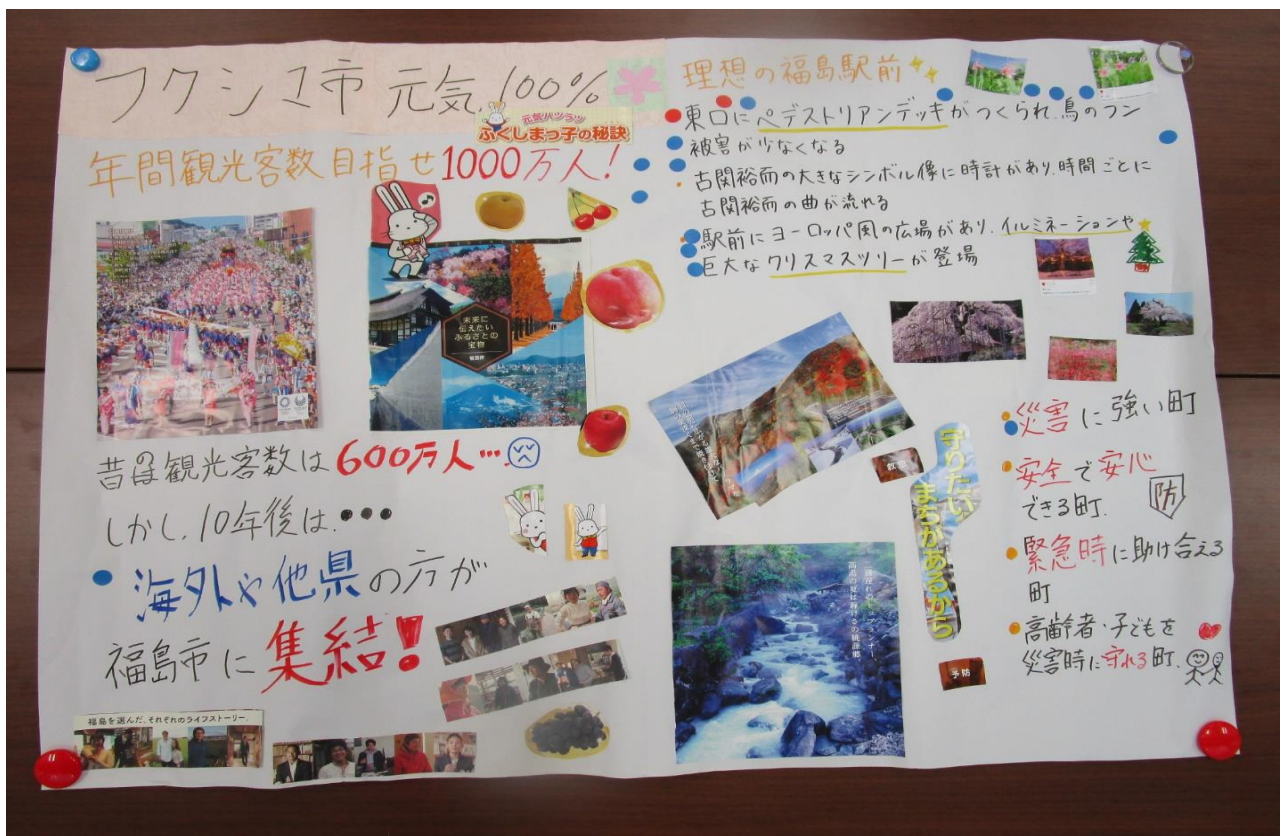 フクシマ市 元気 100%
元気ハツラツ
ふくしまっ子の秘訣
年間観光客数目指せ1000万人!
未来に
伝えたい
ふるさとの
宝物
昔の観光客数は600万人…
しかし、10年後は、•••
海外や他県の方が
福島市に集結!
福島を選んだ、それぞれのライフストーリー。
理想の福島駅前
東口にペデストリアンデッキがつくられ、鳥のフン
被害が少なくなる
古関裕而の大きなシンボル像に時計があり、時間ごとに
古関裕而の曲が流れる
駅前にヨーロッパ風の広場があり、イルミネーションや
巨大なクリスマスツリーが登場
守りたい
まちがあるから
予防
災害に強い町
安全で安心
できる町.
防
緊急時に助け合える
町
高齢者・子どもを
災害時に守れる町.